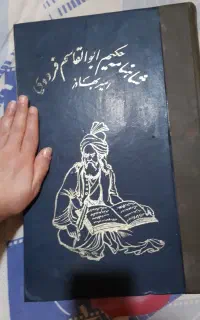 شاهنامه حکیم ابوالقاسم فردوسی
امیربهادر